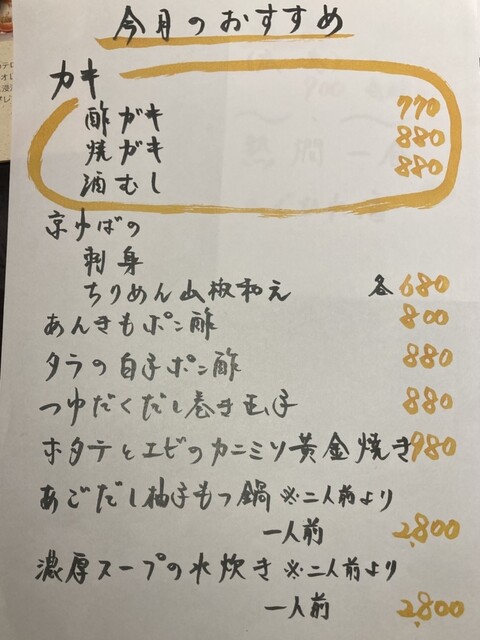 今月のおすすめ
カキ
酢ガキ 770
焼ガキ 880
酒むし 880
京ゆばの
刺身
ちりめん山椒和え 各680
あんきもポン酢 800
タラの白子ポン酢 880
つゆだくだし巻き玉子 880
ホタテとエビのカニミソ黄金焼き 980
あごだし柚子もつ鍋 ※二人前より
一人前 2,800
濃厚スープの水炊き ※二人前より
一人前 2,800